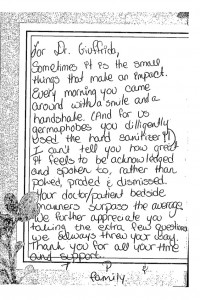 for Dr. Giuffrida,
Sometimes it is the small
things that make an impact.
Every morning you came
around with a smile and a
handshake. (And for us
germaphobes you diligently
used the hand sanitizer!!)
I can't tell you how great
it feels to be acknowledged
and spoken to, rather than
poked, proded & dismissed.
Your doctor/patient bedside
manners surpass the average.
We further appreciate you
taking the extra few questions
we always threw your way.
Thank you for all your time
and support.
family